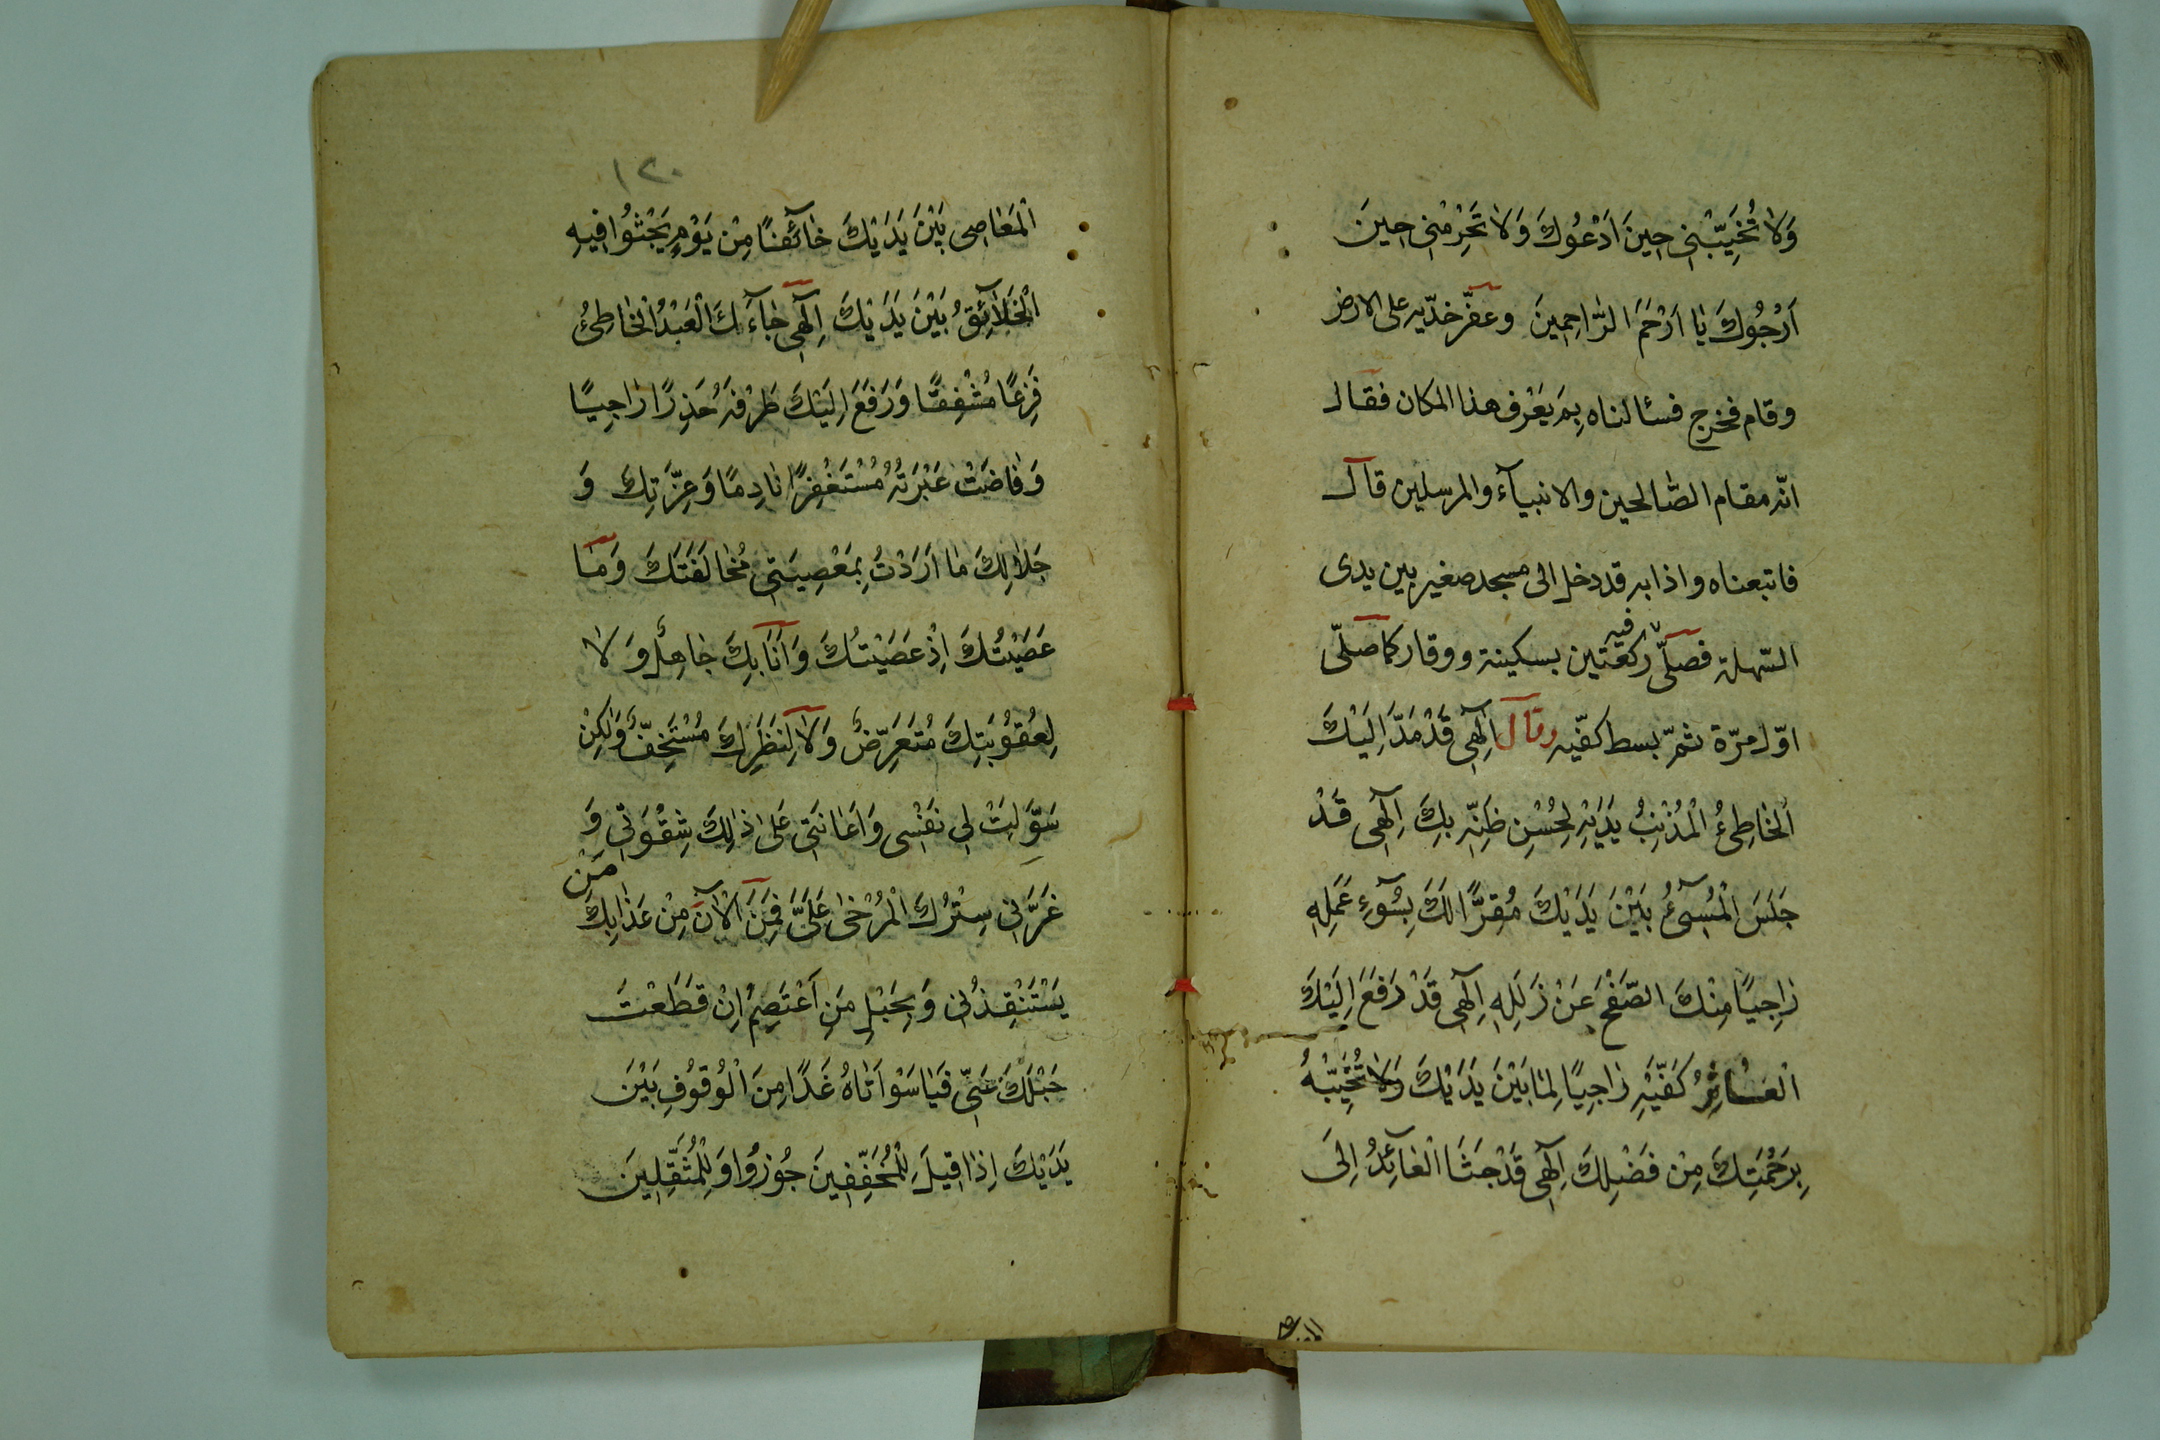 وَلاٰ تُخَيِّبْنِي حِينَ اَدْعُوكَ وَلاٰ تَحْرِمْنِي حِينَ
اَرْجُوكَ يٰا اَرْحَمَ الرّٰاحِمِينَ وعفّر خدّيه على الارض
وقام فخرج فسئالناه بِمَ يَعْرف هذا المكان فقال
انّه مقام الصّالحين والانبيآء والمرسلين قال
فاتبعناه واذا به قد دخل الى مسجد صغير بين يدى
السّهلة فصلّى فيه ركعتين بسكينة ووقار كما صلّى
اوّل مرّة ثمّ بسط كفّيه وقال اِلٰهِي قَدْ مَدَّ اِلَيْكَ
الْخٰاطِئُ الْمُذْنِبُ يَدَيْهِ لِحُسْنِ ظَنِّهِ بِكَ اِلٰهِي قَدْ
جَلَسَ الْمُسِيٓءُ بَيْنَ يَدَيْكَ مُقِرًّا لَكَ بِسُوٓءِ عَمَلِهِ
رٰاجِيًا مِنْكَ الصَّفْحَ عَنْ زَلَلِهِ اِلٰهِي قَدْ رَفَعَ اِلَيْكَ
الْعٰاثِرُ كَفَّيْهِ رٰاجِيًا لِمٰا بَيْنَ يَدَيْكَ وَلاٰ تُخَيِّبْهُ
بِرَحْمَتِكَ مِنْ فَضْلِكَ اِلٰهِي قَدْ جَثَا الْعٰائِدُ اِلَى
١٢٠
الْمَعٰاصِى بَيْنَ يَدَيْكَ خٰائِفًا مِنْ يَوْمٍ يَجْثُوا فِيهِ
الْخَلاٰئِقُ بَيْنَ يَدَيْكَ اِلٰهِي جٰآءَكَ الْعَبْدُ الْخٰاطِئُ
فَزِعًا مُشْفِقًا وَرَفَعَ اِلَيْكَ طَرْفَهُ حَذِرًا رٰاجِيًا
وَفٰاضَتْ عَبْرَتُهُ مُسْتَغْفِرًا نٰادِمًا وَعِزَّتِكَ وَ
جَلاٰلِكَ مٰا اَرَدْتُ بِمَعْصِيَتِي مُخٰالَفَتَكَ وَمٰا
عَصَيْتُكَ اِذْ عَصَيْتُكَ وَاَنَا بِكَ جٰاهِلٌ وَلاٰ
لِعُقُوبَتِكَ مُتَعَرِّضٌ وَلاٰ لِنَظَرِكَ مُسْتَخِفٌّ وَلٰكِنْ
سَوَّلَتْ لِي نَفْسِى وَاَعٰانَتْنِي عَلىٰ ذٰلِكَ شِقْوَتِي وَ
غَرَّنِي سِتْرُكَ الْمُرْخىٰ عَلَيَّ فَمِنَ الْآنَ مِنْ عَذٰابِكَ مَنْ
يَسْتَنْقِذُنِي وَبِحَبْلِ مَنْ اَعْتَصِمُ اِنْ قَطَعْتَ
حَبْلَكَ عَنِّي فَيٰا سَوْاَتٰاهُ غَدًا مِنَ الْوُقُوفِ بَيْنَ
يَدَيْكَ اِذٰا قِيلَ لِلْمُخَفِّفِينَ جُوزُوا وَلِلْمُثَقِّلِينَ